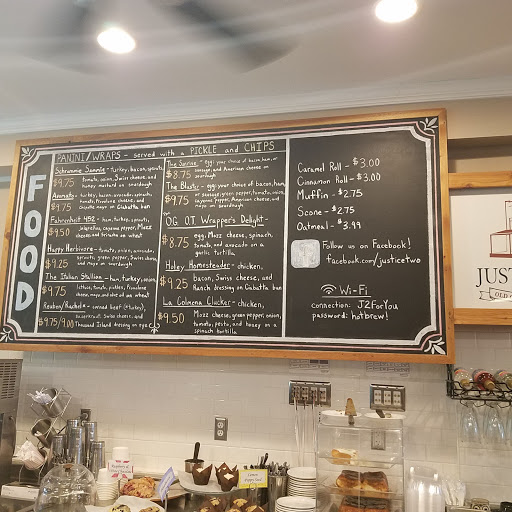 FOOD
PANINI/WRAPS - served with a PICKLE and CHIPS
Schrumme Sammie - turkey, bacon, sprouts,
$9.75 tomato, onion, Swiss cheese, and
honey mustard on sourdough
Aromatic - turkey, bacon, avocado, sprouts,
$9.75 tomato, Provolone cheese, and
chipotle mayo on Ciabatta bun
Fahrenheit 482 - ham, turkey, sprouts,
$9.50 jalapeños, cayenne pepper, Mozz
cheese and sriracha on wheat
Happy Herbivore - tomato, onion, avocado,
$9.25 sprouts, green pepper, Swiss cheese,
and mayo on sourdough
The Italian Stallion - ham, turkey, onion,
$9.75 lettuce, tomato, pickles, Provolone
cheese, mayo, and vin. oil on wheat
Reuben/Rachel - corned beef (turkey),
sauerkraut, Swiss cheese, and
$9.75/9.00 Thousand Island dressing on rye
The Sunrise - egg; your choice of bacon, ham, or
$8.75 sausage, and American cheese on
sourdough
The Blaster - egg; your choice of bacon, ham,
$9.75 or sausage; green pepper, tomato, onion,
cayenne pepper, American cheese, and
mayo on sourdough
-or-
OG QT Wrapper's Delight -
$8.75 egg, Mozz cheese, spinach,
tomato, and avocado on a
garlic tortilla
Holey Homesteader - chicken,
$9.25 bacon, Swiss cheese, and
Ranch dressing on Ciabatta bun
La Colmena Clucker - chicken,
$9.50 Mozz cheese, green pepper, onion,
tomato, pesto, and honey on a
spinach tortilla
Caramel Roll - $3.00
Cinnamon Roll - $3.00
Muffin - $2.75
Scone - $2.75
Oatmeal - $3.99
Follow us on Facebook!
facebook.com/justicetwo
Wi-Fi
connection: J2ForYou
password: hotbrew!
JUST
OLD